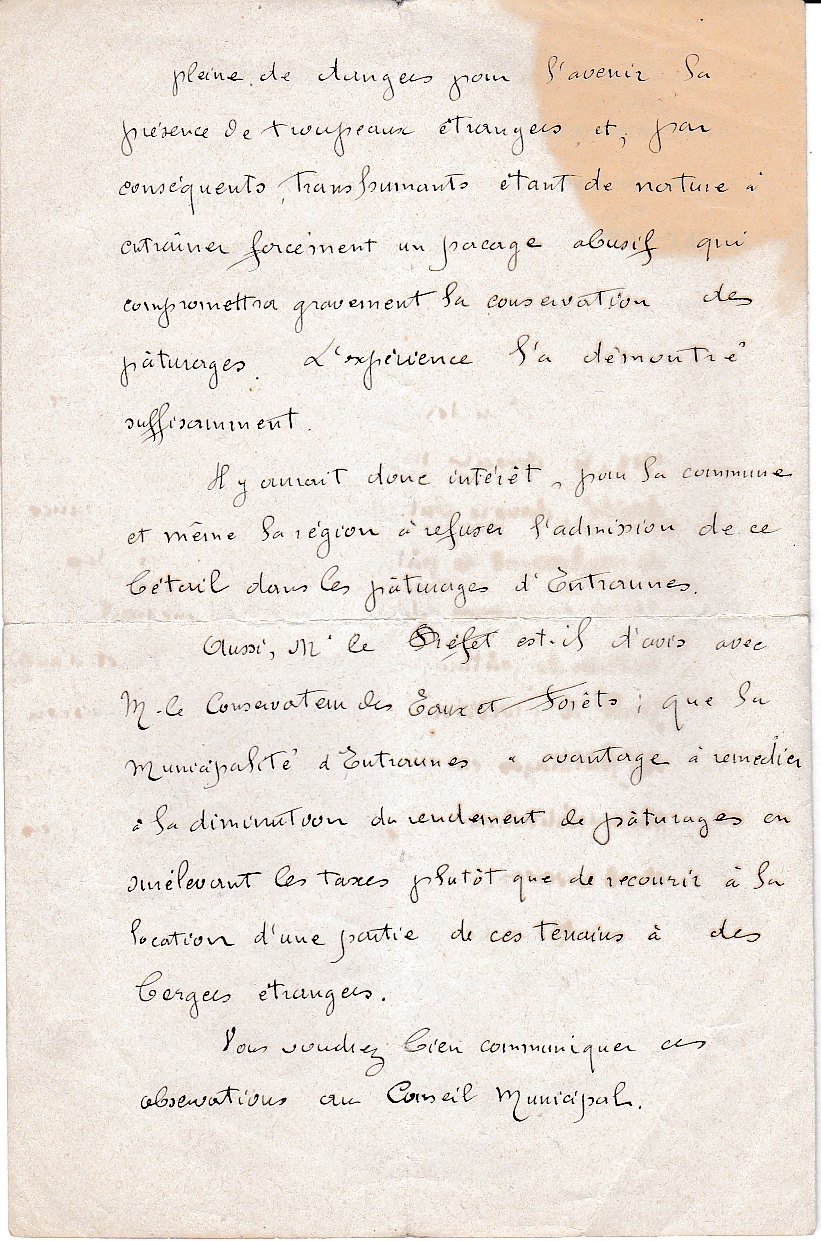 pleine de dangers pour l'avenir la
présence de troupeaux étrangers et, par
conséquents, transhumants étant de nature à
entraîner forcément un pacage abusif qui
compromettra gravement la conservation des
pâturages. L'expérience l'a démontré
suffisamment.
Il y aurait donc intérêt, pour la commune
et même la région à refuser l'admission de ce
bétail dans les pâturages d'Entraunes.
Aussi, Mr le Préfet est-il d'avis avec
M. le Conservateur des Eaux et Forêts ; que la
Municipalité d'Entraunes a avantage à remedier
à la diminution du rendement de pâturages en
surélevant les taxes plutôt que de recourir à la
location d'une partie de ces terrains à des
bergers étrangers.
Vous voudrez bien communiquer ces
observations au Conseil Municipal.